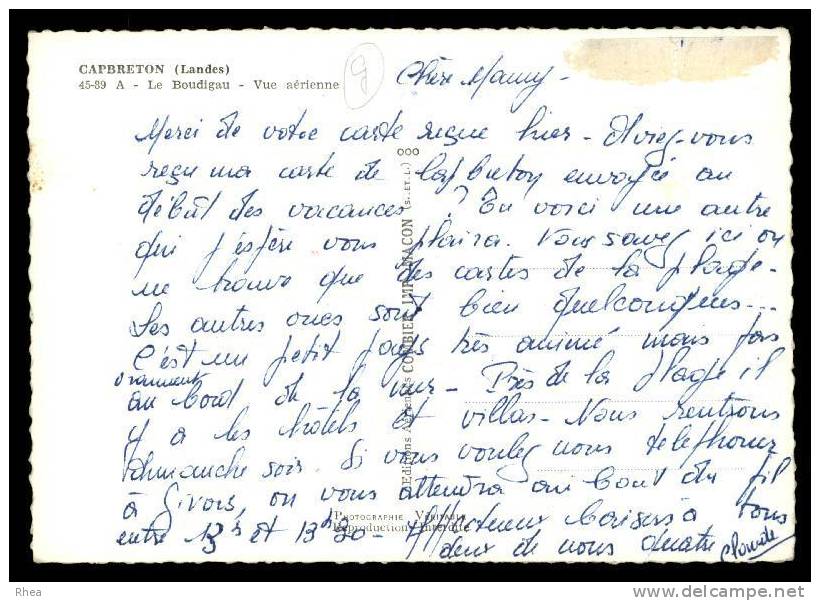 CAPBRETON (Landes)
45-89 A - Le Boudigau - Vue aérienne
9
Chère Mamy -
Merci de votre carte reçue hier - Aviez-vous
reçu ma carte de Capbreton envoyée au
début des vacances ? En voici une autre
qui j'espère vous plaira. Vous savez ici on
ne trouve que des cartes de la plage -
Les autres vues sont bien quelconques...
C'est un petit pays très animé mais pas
vraiment
au bord de la mer - Près de la plage il
y a les hôtels et villas - Nous rentrons
dimanche soir Si vous voulez nous telephoner
à Givors, on vous attendra au bout du fil
entre 13h et 13h30 - Affectueux baisers à tous
deux de nous quatre
Editions Aériennes COMBIER IMP. MACON (S.-ET-L.)
PHOTOGRAPHIE VÉRITABLE
Reproduction Interdite
Rhea
www.delcampe.net